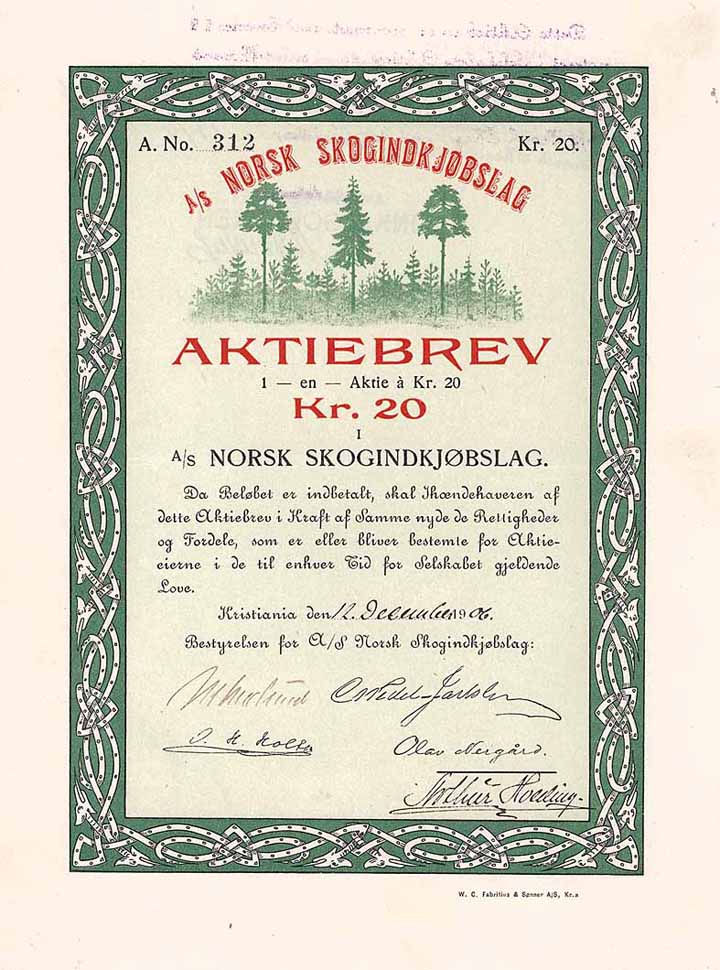 A. No. 312 Kr. 20.
A/S NORSK SKOGINDKJØBSLAG
AKTIEBREV
1 — en — Aktie à Kr. 20
Kr. 20
I
A/S NORSK SKOGINDKJØBSLAG.
Da Beløbet er indbetalt, skal Ihændehaveren af
dette Aktiebrev i Kraft af Samme nyde de Rettigheder
og Fordele, som er eller bliver bestemte for Aktie-
eierne i de til enhver Tid for Selskabet gjeldende
Love.
Kristiania den 12. December 1906.
Bestyrelsen for A/S Norsk Skogindkjøbslag:
Wedel-Jarlsberg
J. H. Holta Olav Nergård.
W. C. Fabritius & Sønner A/S, Kr.a